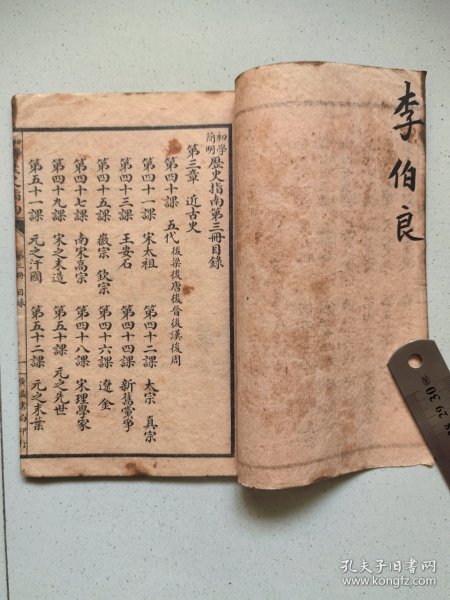 李伯良
初學簡明歷史指南第三冊目錄
第三章 近古史
第四十課 五代 後梁後唐後晉後漢後周
第四十一課 宋太祖 第四十二課 太宗 真宗
第四十三課 王安石 第四十四課 新舊黨爭
第四十五課 徽宗 欽宗 第四十六課 遼 金
第四十七課 南宋高宗 第四十八課 宋理學家
第四十九課 宋之末造 第五十課 元之先世
第五十一課 元之汗國 第五十二課 元之末葉
目錄
一
28 29 30
孔夫子旧书网
www.kongfz.com